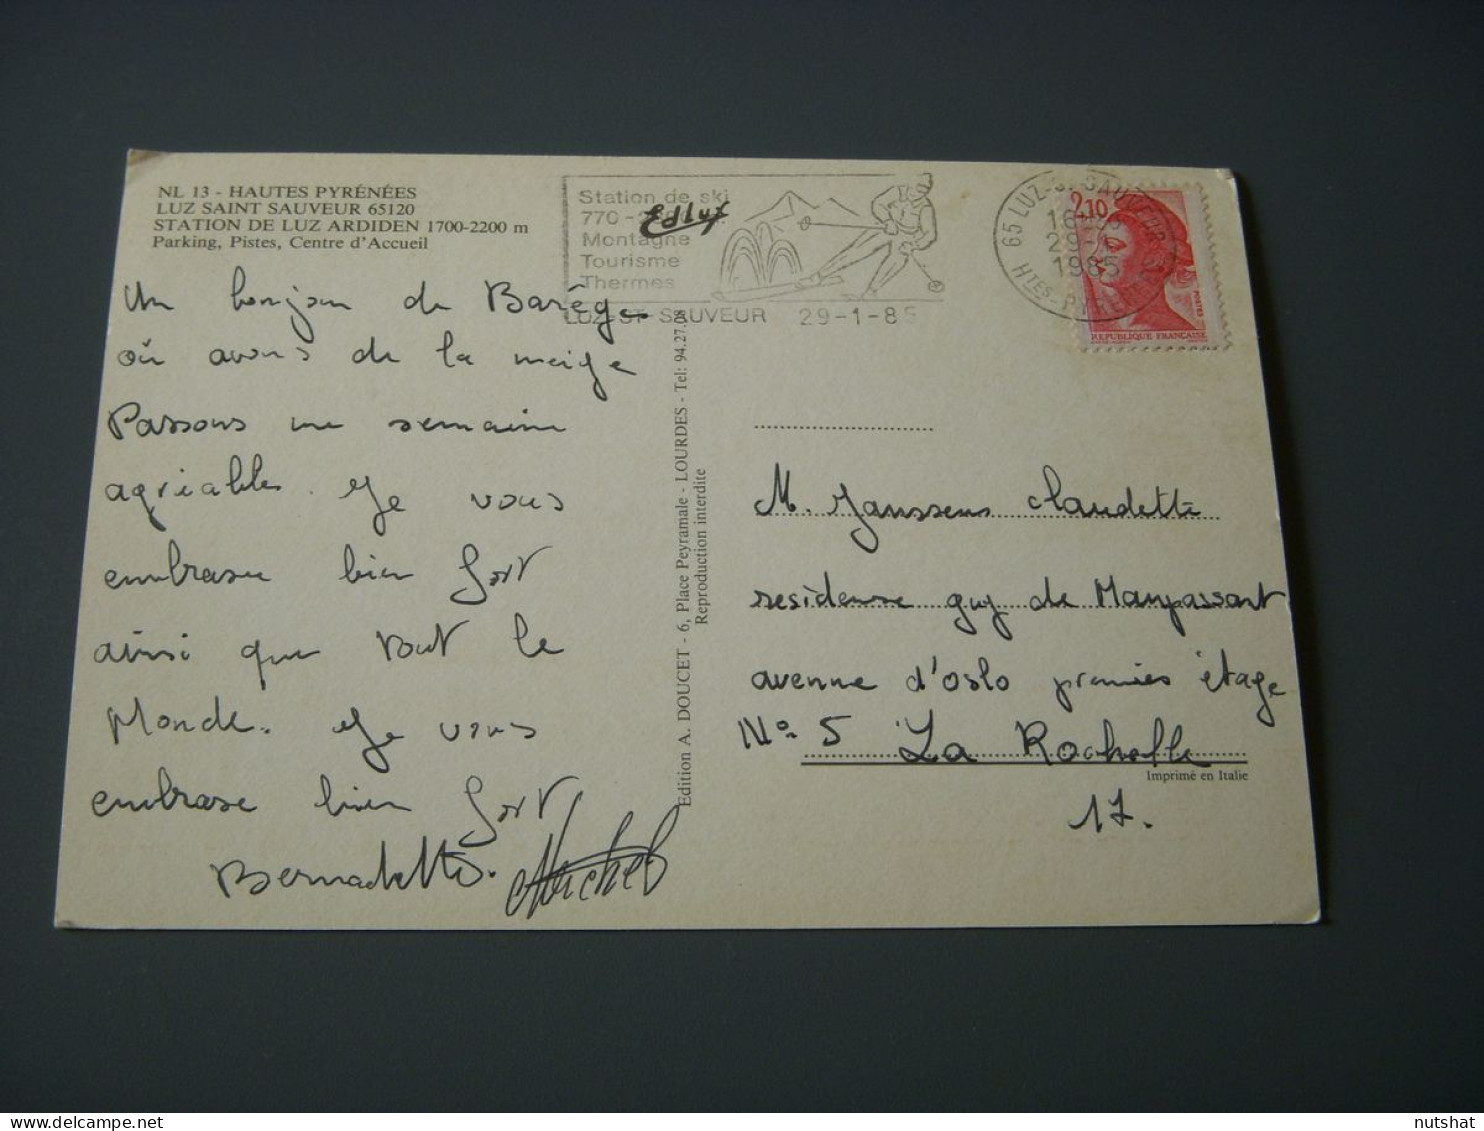 NL 13 - HAUTES PYRÉNÉES
LUZ SAINT SAUVEUR 65120
STATION DE LUZ ARDIDEN 1700-2200 m
Parking, Pistes, Centre d'Accueil
Un bonjour de Barège
où avons de la neige
Passons une semaine
agréables. Je vous
embrasse bien fort
ainsi que tout le
Monde. Je vous
embrase bien fort
Bernadette. Michel
Station de ski
770 -
Montagne
Tourisme
Thermes
LUZ-ST-SAUVEUR 29-1-85
65 LUZ-ST-SAUVEUR
29-1
1985
HTES-PYRENEES
2,10
POSTES
REPUBLIQUE FRANÇAISE
Edition A. DOUCET - 6, Place Peyramale - LOURDES - Tel: 94.27.08
Reproduction interdite
M. Janssens Claudette
residense guy de Maupassant
avenue d'oslo premies étage
No 5 La Rochelle
Imprimé en Italie
17.
nutshat
delcampe.net